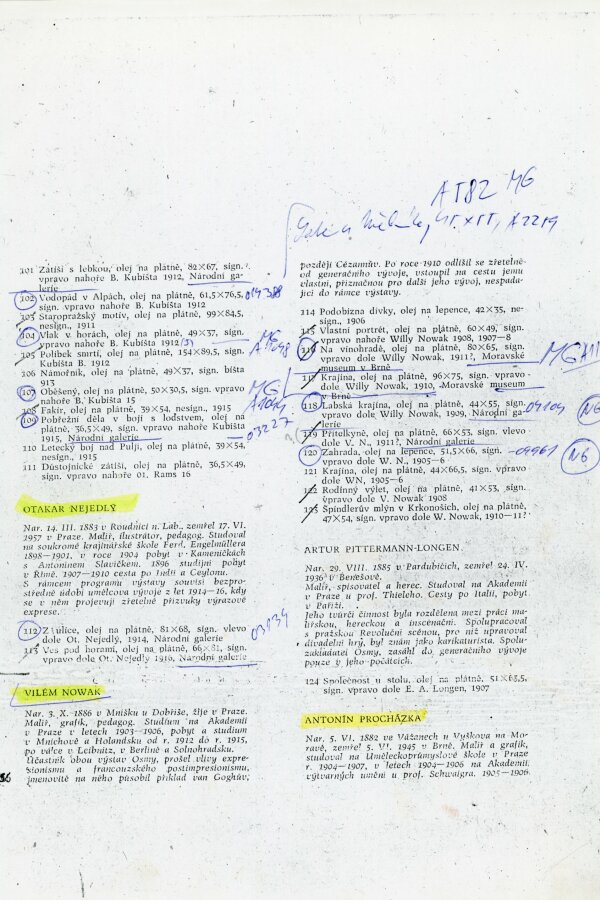 AT82 MG
101 Zátiší s lebkou, olej na plátně, 82×67, sign.
vpravo nahoře B. Kubišta 1912, Národní ga-
lerie
102 Vodopád v Alpách, olej na plátně, 61,5×76,5,
sign. vpravo nahoře B. Kubišta 1912
103 Staropražský motiv, olej na plátně, 99×84,5,
nesign., 1911
104 Vlak v horách, olej na plátně, 49×37, sign.
vpravo nahoře B. Kubišta 1912
MG
105 Polibek smrti, olej na plátně, 154×89,5, sign.
Kubišta B. 1912
106 Námořník, olej na plátně, 49×37, sign. bišta
913
107 Oběšený, olej na plátně, 50×30,5, sign. vpravo
nahoře B. Kubišta 15
MG
108 Fakír, olej na plátně, 39×54, nesign., 1915
109 Pobřežní děla v boji s loďstvem, olej na
plátně, 36,5×49, sign. vpravo nahoře Kubišta
1915, Národní galerie
03227
110 Letecký boj nad Pulji, olej na plátně, 39×54,
nesign., 1915
111 Důstojnické zátiší, olej na plátně, 36,5×49,
sign. vpravo nahoře 01. Rams 16
OTAKAR NEJEDLÝ
Nar. 14. III. 1883 v Roudnici n. Lab., zemřel 17. VI.
1957 v Praze. Malíř, ilustrátor, pedagog. Studoval
na soukromé krajinářské škole Ferd. Engelmüllera
1898—1901, v roce 1904 pobyt v Kameničkách
s Antonínem Slavíčkem. 1896 studijní pobyt
v Římě. 1907—1910 cesta po Indii a Ceylonu.
S rámcem programu výstavy souvisí bezpro-
středně údobí umělcova vývoje z let 1914—16, kdy
se v něm projevují zřetelné přízvuky výrazové
exprese.
112 Z ulice, olej na plátně, 81×68, sign. vlevo
dole Ot. Nejedlý, 1914, Národní galerie
03134
113 Ves pod horami, olej na plátně, 66×81, sign.
vpravo dole Ot. Nejedlý 1916, Národní galerie
VILÉM NOWAK
Nar. 3. X. 1886 v Mníšku u Dobříše, žije v Praze.
Malíř, grafik, pedagog. Studium na Akademii
v Praze v letech 1903—1906, pobyt a studium
v Mnichově a Holandsku od r. 1912 do r. 1915,
po válce v Leibnitz, v Berlíně a Solnohradsku.
Účastník obou výstav Osmy, prošel vlivy expre-
sionismu a francouzského postimpresionismu,
jmenovitě na něho působil příklad van Goghův,
36
později Cézannův. Po roce 1910 odlišil se zřetelně
od generačního vývoje, vstoupil na cestu jemu
vlastní, příznačnou pro další jeho vývoj, nespada-
jící do rámce výstavy.
114 Podobizna dívky, olej na lepence, 42×35, ne-
sign., 1906
115 Vlastní portrét, olej na plátně, 60×49, sign.
vpravo nahoře Willy Nowak 1908, 1907—8
116 Na vinohradě, olej na plátně, 80×65, sign.
vpravo dole Willy Nowak, 1911?, Moravské
museum v Brně
117 Krajina, olej na plátně, 96×75, sign. vpravo
dole Willy Nowak, 1910, Moravské museum
v Brně
118 Labská krajina, olej na plátně, 44×55, sign.
vpravo dole Willy Nowak, 1909, Národní ga-
lerie
NG
119 Přítelkyně, olej na plátně, 66×53, sign. vlevo
dole V. N., 1911?, Národní galerie
120 Zahrada, olej na lepence, 51,5×66, sign.
vpravo dole W. N., 1905—6
NG
121 Krajina, olej na plátně, 44×66,5, sign. vpravo
dole WN, 1905—6
122 Rodinný výlet, olej na plátně, 41×53, sign.
vpravo dole V. Nowak 1908
123 Špindlerův mlýn v Krkonoších, olej na plátně,
47×54, sign. vpravo dole W. Nowak, 1910—11?
ARTUR PITTERMANN-LONGEN
Nar. 29. VIII. 1885 v Pardubicích, zemřel 24. IV.
1936 v Benešově.
Malíř, spisovatel a herec. Studoval na Akademii
v Praze u prof. Thieleho. Cesty po Itálii, pobyt
v Paříži.
Jeho tvůrčí činnost byla rozdělena mezi práci ma-
lířskou, hereckou a inscenační. Spolupracoval
s pražskou Revoluční scénou, pro niž upravoval
divadelní hry, byl znám jako karikaturista. Spolu-
zakladatel Osmy, zasáhl do generačního vývoje
pouze v jeho počátcích.
124 Společnost u stolu, olej na plátně, 51×63,5,
sign. vpravo dole E. A. Longen, 1907
ANTONÍN PROCHÁZKA
Nar. 5. VI. 1882 ve Vážanech u Vyškova na Mo-
ravě, zemřel 5. VI. 1945 v Brně. Malíř a grafik,
studoval na Uměleckoprůmyslové škole v Praze
r. 1904—1907, v letech 1904—1906 na Akademii
výtvarných umění u prof. Schwaigra. 1905—1906